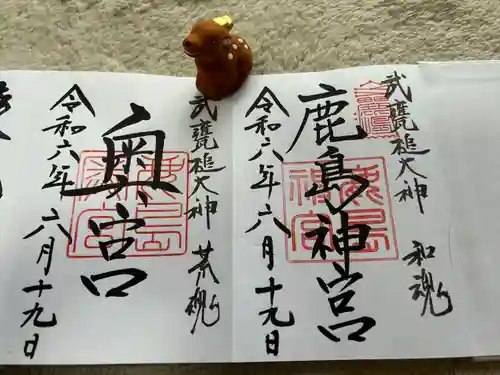 武甕槌大神 和魂
鹿島神宮
令和六年六月十九日
武甕槌大神 荒魂
奥宮
令和六年六月十九日